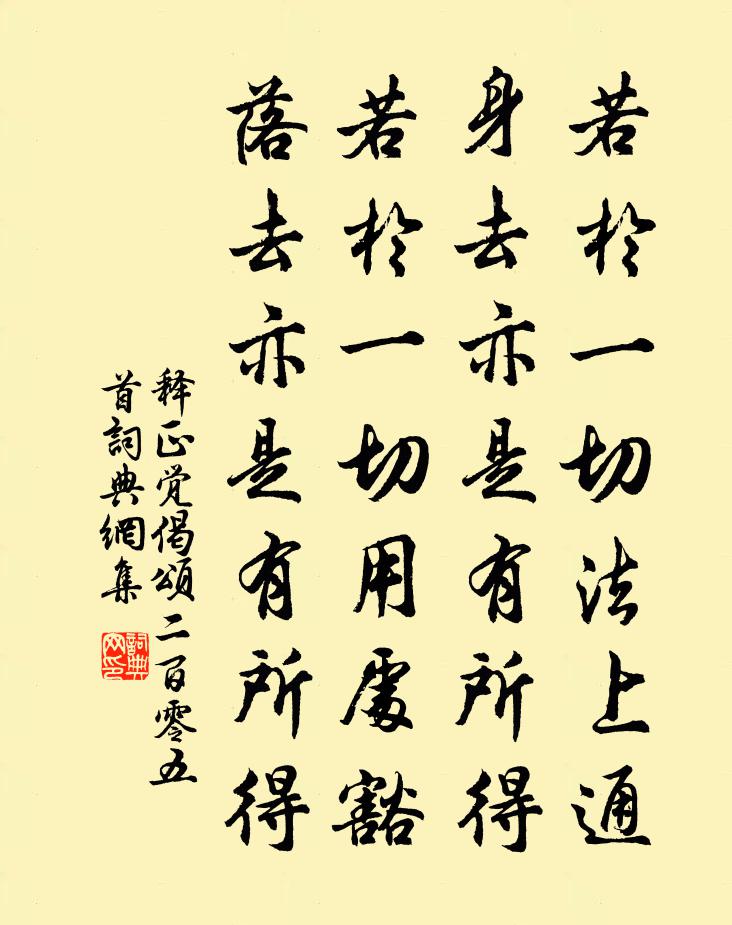 若於一切法上通
身去亦是有所得
若於一切用處豁
落去亦是有所得
释正觉偈頌二百零五
首詞典網集
詞典网印